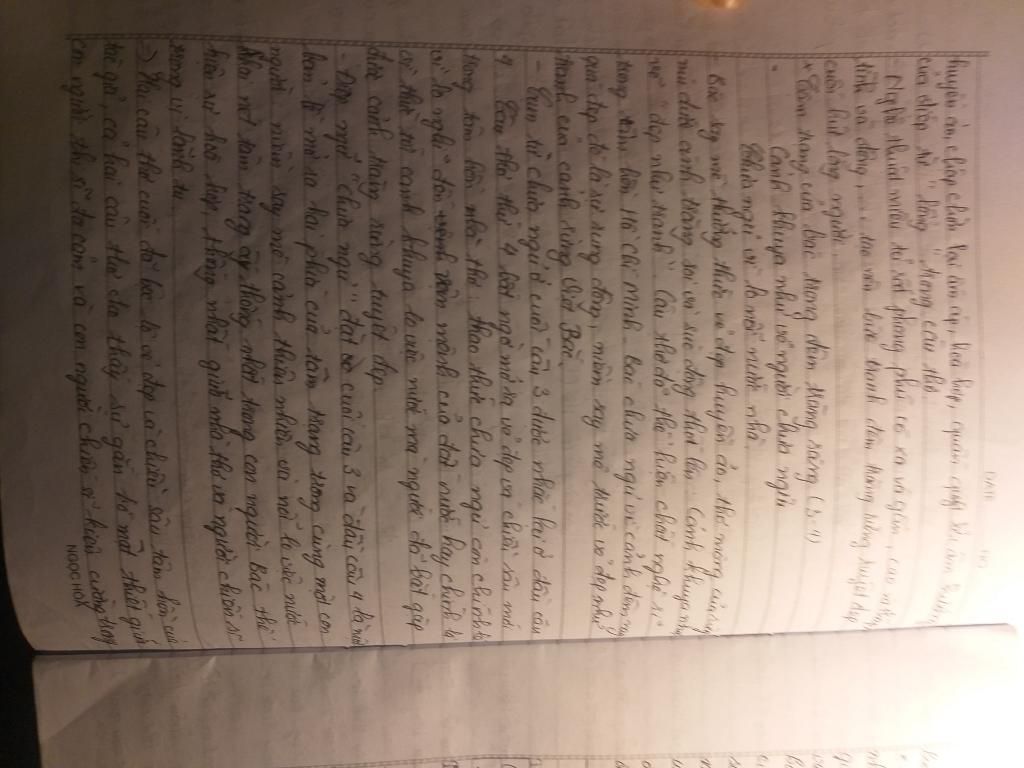 DATE
huyền ảo chập chờn lại ấm áp, hòa hợp, quấn quýt bởi âm hưởng
của điệp từ "lồng" trong câu thơ.
- Nghệ thuật miêu tả rất phong phú có xa và gần, cao và thấp
tĩnh và động, ... tạo nên bức tranh đêm trăng rừng tuyệt đẹp
cuốn hút lòng người.
+ Tâm trạng của Bác trong đêm trăng sáng
Cảnh khuya như vẽ người chưa ngủ
Chưa ngủ vì lo nỗi nước nhà.
- Bác say mê thưởng thức vẻ đẹp huyền ảo, thơ mộng của
dưới ánh trăng soi và sức sống thơ: Cảnh khuya như
vẽ đẹp như tranh. Câu thơ đó thể hiện chất nghệ sĩ
trong tâm hồn Hồ Chí Minh - Bác chưa ngủ vì cảnh đêm nay
quá đẹp đó là sự rung động, niềm say mê trước vẻ đẹp như
tranh của cảnh rừng Việt Bắc.
- Cụm từ chưa ngủ ở cuối câu 3 được nhắc lại ở đầu câu
4. Câu thơ thứ 4 bất ngờ mở ra vẻ đẹp và chiều sâu mới
trong tâm hồn nhà thơ: thao thức chưa ngủ còn chính là
vì lo nghĩ đến vận mệnh của đất nước hay chính là
vì thao thức canh khuya lo việc nước mà người đã bắt gặp
được cảnh trăng rừng tuyệt đẹp.
- Điệp ngữ "chưa ngủ" đặt ở cuối câu 3 và đầu câu 4 là một
bản lề mở ra hai phía của tâm trạng trong cùng một con
người: niềm say mê cảnh thiên nhiên và nỗi lo việc nước
Hai nét tâm trạng ấy thống nhất trong con người Bác thể
hiện sự hòa hợp, thống nhất giữa nhà thơ và người chiến sĩ
trong vị lãnh tụ.
=> Hai câu thơ cuối đã bộc lộ vẻ đẹp và chiều sâu tâm hồn của
tác giả, cả hai câu thơ cho thấy sự gắn bó mật thiết giữa
con người thi sĩ đa cảm và con người chiến sĩ kiên cường trong
NGOC HOA